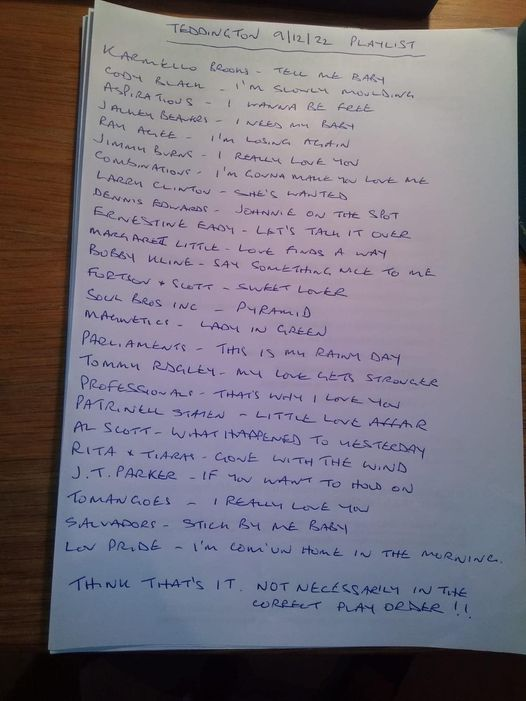 TEDDINGTON 9/12/22 PLAYLIST
KARMELLO BROOKS - TELL ME BABY
CODY BLACK - I'M SLOWLY MOULDING
ASPIRATIONS - I WANNA BE FREE
JACKEY BEAVERS - I NEED MY BABY
RAY AGEE - I'M LOSING AGAIN
JIMMY BURNS - I REALLY LOVE YOU
COMBINATIONS - I'M GONNA MAKE YOU LOVE ME
LARRY CLINTON - SHE'S WANTED
DENNIS EDWARDS - JOHNNIE ON THE SPOT
ERNESTINE EADY - LET'S TALK IT OVER
MARGARET LITTLE - LOVE FINDS A WAY
BOBBY KLINE - SAY SOMETHING NICE TO ME
FORTSON & SCOTT - SWEET LOVER
SOUL BROS INC - PYRAMID
MAGNETICS - LADY IN GREEN
PARLIAMENTS - THIS IS MY RAINY DAY
TOMMY RIDGLEY - MY LOVE GETS STRONGER
PROFESSIONALS - THAT'S WHY I LOVE YOU
PATRINELL STATEN - LITTLE LOVE AFFAIR
AL SCOTT - WHAT HAPPENED TO YESTERDAY
RITA & TIARAS - GONE WITH THE WIND
J.T. PARKER - IF YOU WANT TO HOLD ON
TOMANGOES - I REALLY LOVE YOU
SALVADORS - STICK BY ME BABY
LOU PRIDE - I'M COM'UN HOME IN THE MORNING.
THINK THAT'S IT. NOT NECESSARILY IN THE
CORRECT PLAY ORDER !!